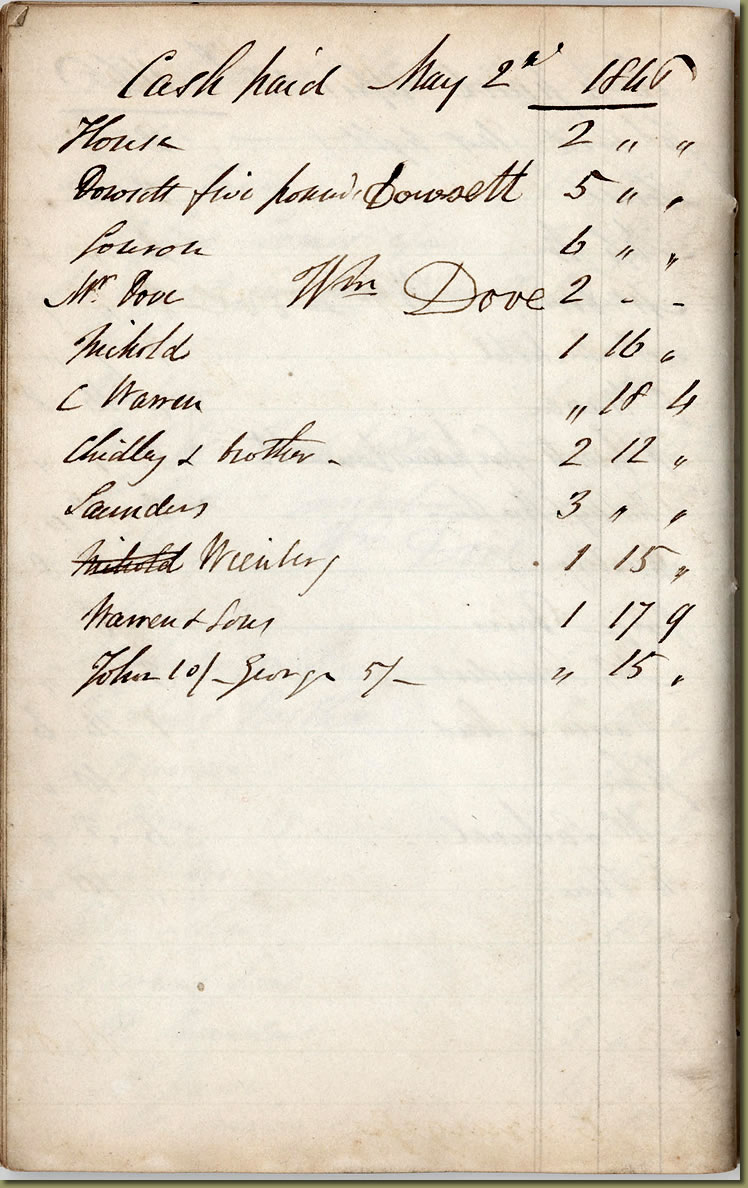 Cash paid May 2nd 1846
House 2 " "
Dowsett five pounds Dowsett 5 " "
6 " "
Mr Dove Wm Dove 2 - -
Nichold 1 16 "
C Warren " 18 4
Chidley & brother - 2 12 "
Saunders 3 " "
Nichold Weinberg 1 15 "
Warren & Sons 1 17 9
John 10/- George 5/- " 15 "